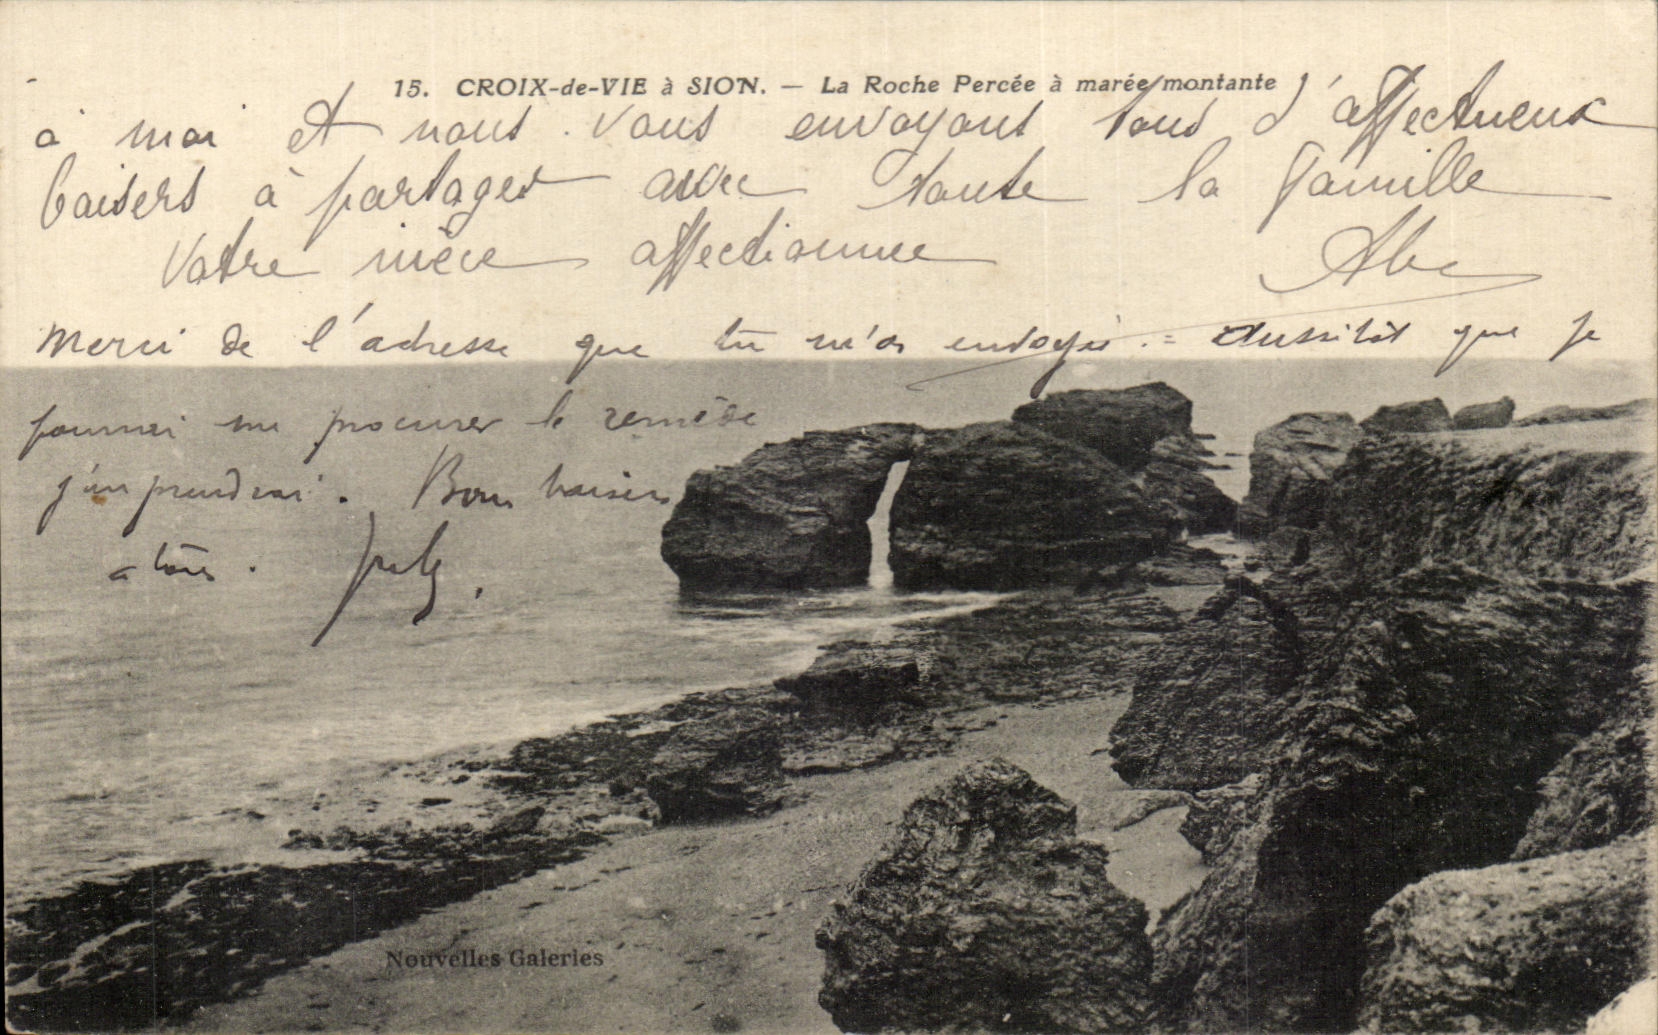 15. CROIX-de-VIE à SION. — La Roche Percée à marée montante
à moi et nous vous envoyons tous d'affectueux
baisers à partager avec toute la famille
Votre nièce affectionnée
Merci de l'adresse que tu m'as envoyée. = Aussitôt que je
pourrai me procurer le remède
j'en prendrai. Bons baisers
a tous.
Nouvelles Galeries